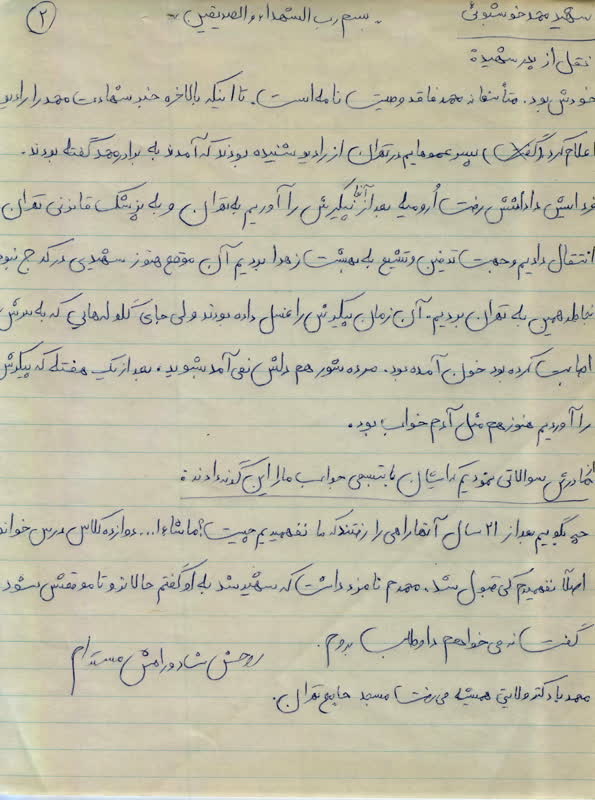 ۲
بسم رب الشهداء والصدیقین
شهید محمد خوشبوئی
نقل از پدر شهید:
خودش بود. متأسفانه محمد فاقد وصیت نامه است. تا اینکه بالاخره خبر شهادت محمد را رادیو
اعلام کرد پسر عموهایم در تهران از رادیو شنیده بودند که آمدند به برادر محمد گفته بودند.
فردایش داداشش رفت اُرومیه بعد از آن پیکرش را آوریم به تهران و به پزشک قانونی تهران
انتقال دادیم و جهت تدفین و تشیع به بهشت زهرا بردیم آن موقع هنوز شهیدی در کرج نبود
بخاطر همین به تهران بردیم. آن زمان پیکرش را غسل داده بودند ولی جای گلوله‌هایی که به سرش
اصابت کرده بود خون آمده بود. مرده‌شور هم دلش نمی‌آمد بشوید، بعد از یک هفته که پیکرش
را آوردیم هنوز هم مثل آدم خواب بود.
از مادرش سوالاتی نمودیم که ایشان با تبسمی جواب ما را این گونه دادند:
چه بگوییم بعد از ۲۱ سال آنها راهی را رفتند که ما نفهمیدیم چیست؟ ماشاءا... دوازده کلاس درس خواند
اصلاً نفهمیدم کی قبول شد. محمدم نامزد داشت که شهید شد به او گفتم حالا نرو تا موقعش بشود
گفت نه می‌خواهم داوطلب بروم.
روحش شاد و راهش مستدام
محمد با دکتر ولایتی همیشه می‌رفت مسجد جامع تهران.